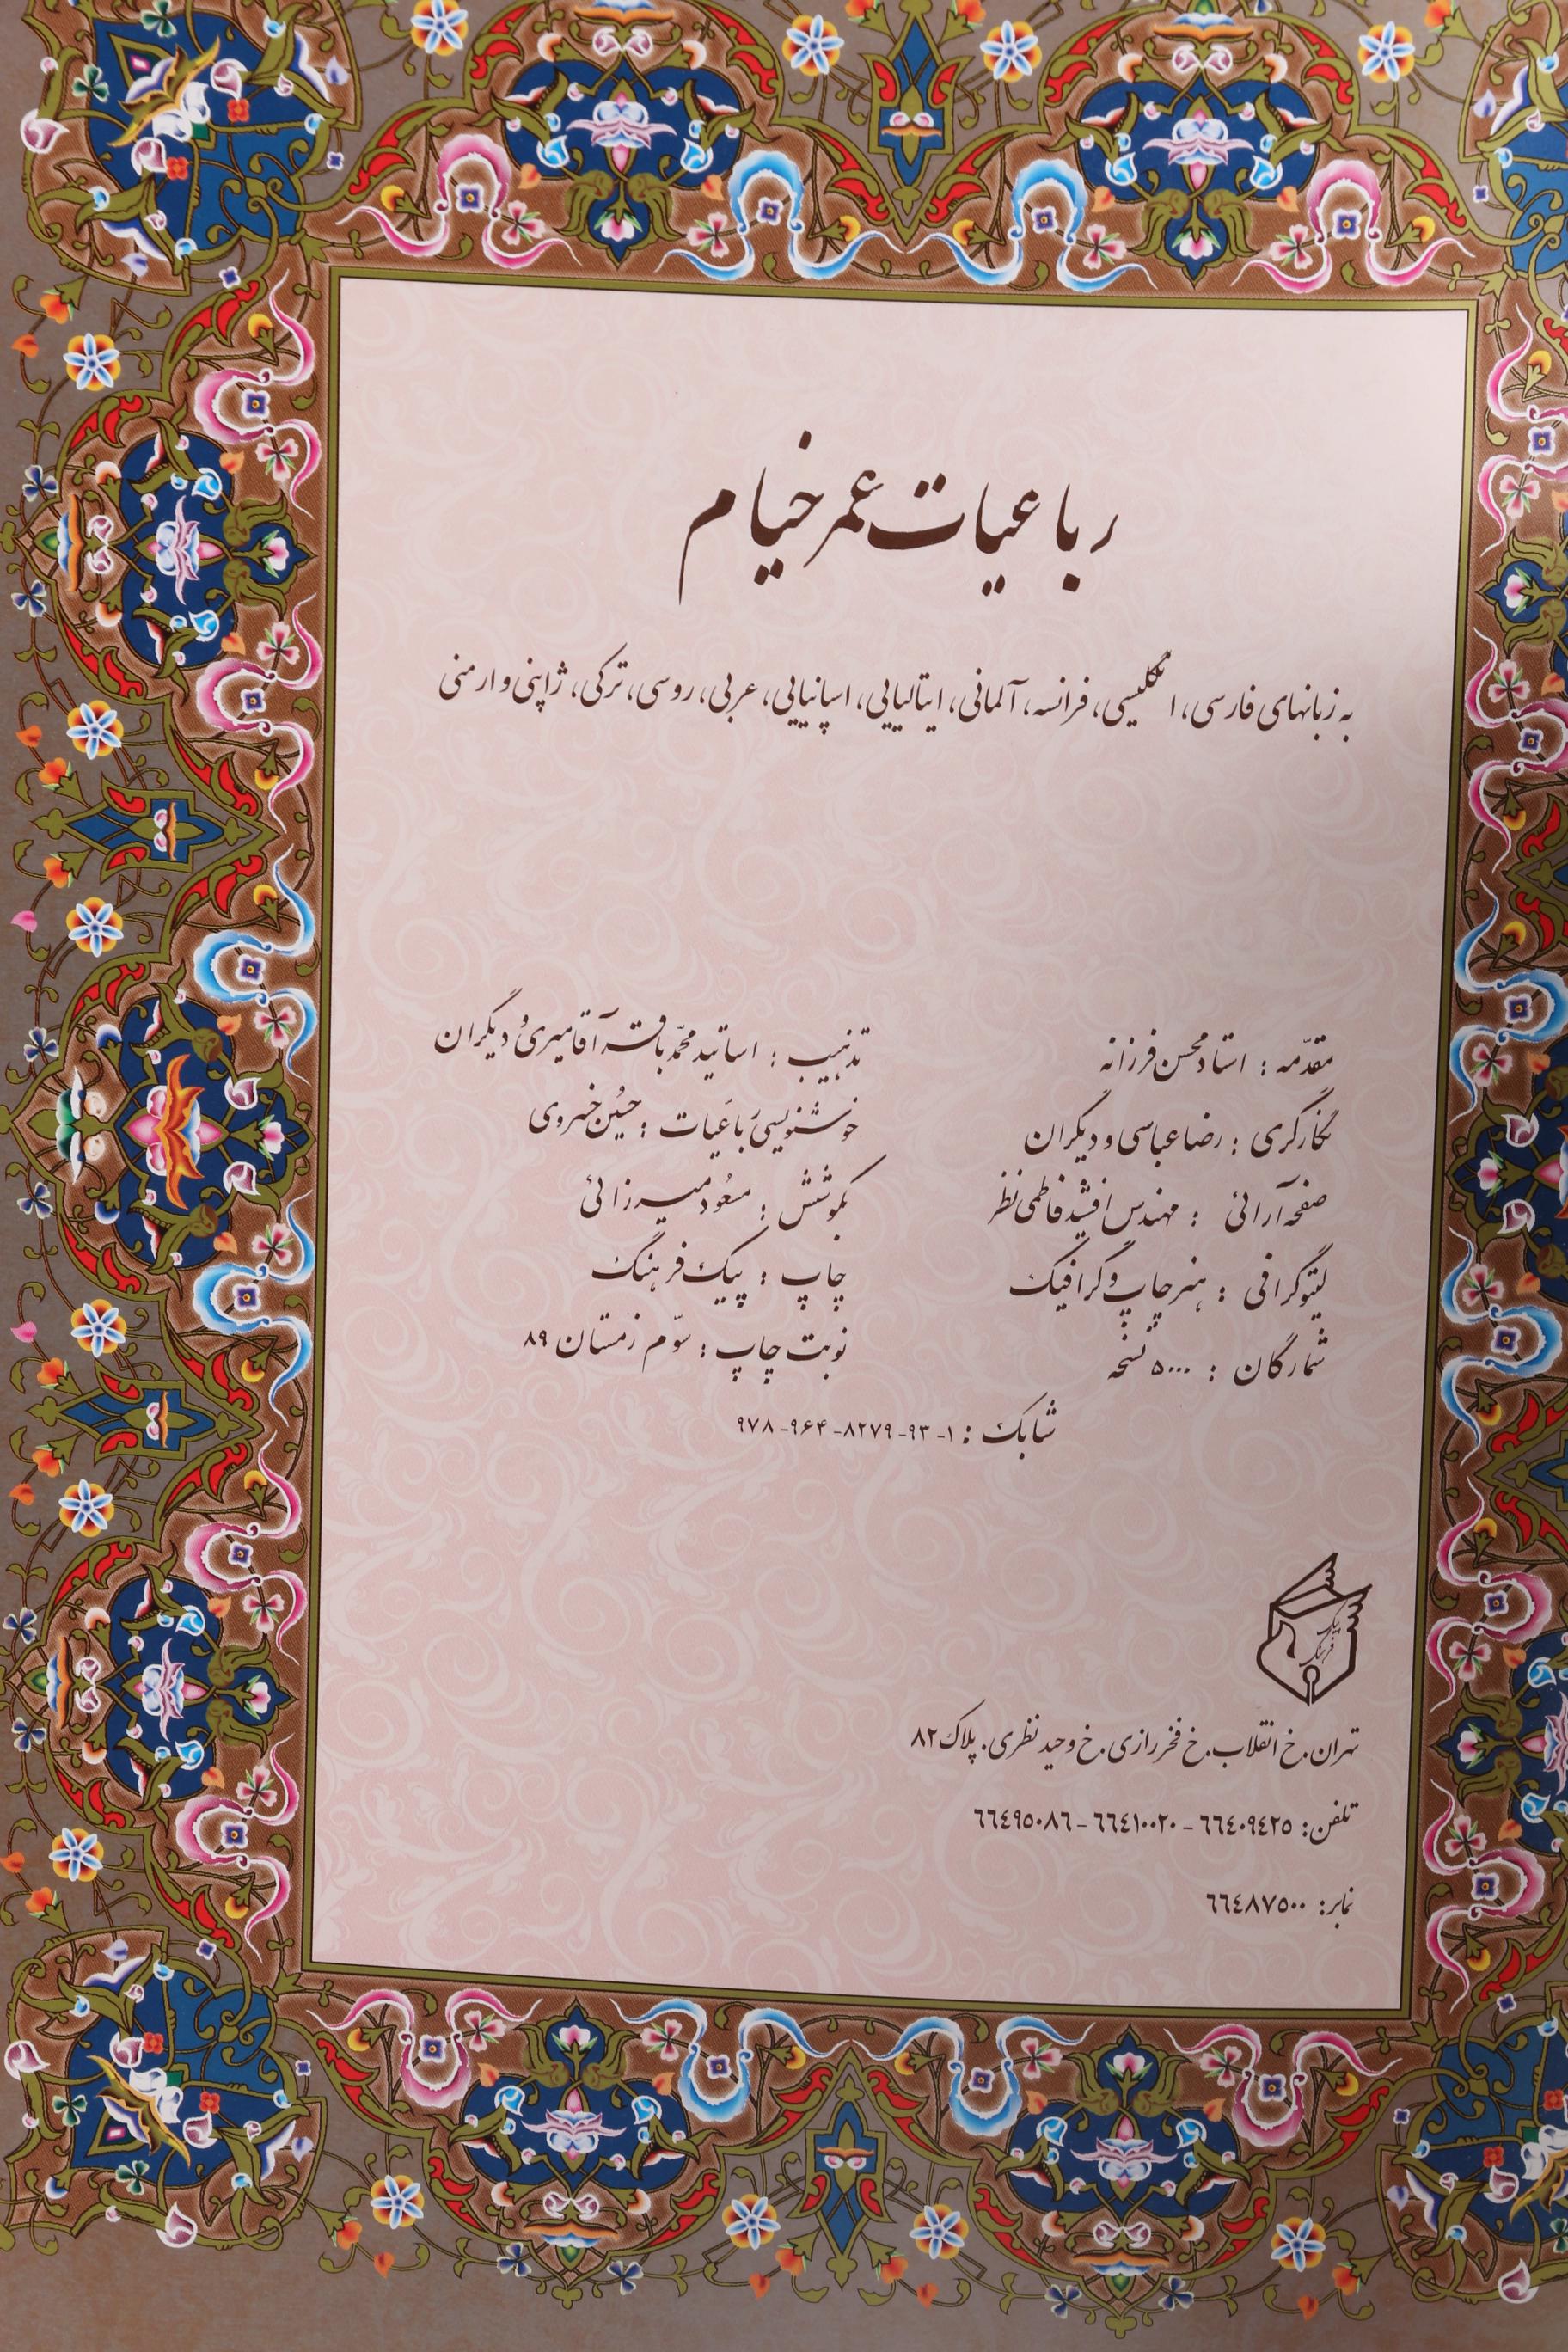 رباعیات عمر خیام
به زبانهای فارسی، انگلیسی، فرانسه، آلمانی، ایتالیایی، اسپانیایی، عربی، روسی، ترکی، ژاپنی و ارمنی
مقدّمه : استاد محسن فرزانه
نگارگری : رضا عباسی و دیگران
صفحه آرائی : مهندس افشید فاطمی نظر
لیتوگرافی : هنر چاپ و گرافیک
شمارگان : ۵۰۰۰ نسخه
تذهیب : اساتید محمّدباقر آقامیری و دیگران
خوشنویسی رباعیات : حسین خسروی
بکوشش : مسعود میرزائی
چاپ : پیک فرهنگ
نوبت چاپ : سوّم زمستان ۸۹
شابک : ۱-۹۳-۸۲۷۹-۹۶۴-۹۷۸
پیک فرهنگ
تهران. خ انقلاب. خ فخر رازی. خ وحید نظری. پلاک ۸۲
تلفن: ٦٦٤٠٩٤٢٥ - ٦٦٤١٠٠٢٠ - ٦٦٤٩٥٠٨٦
نمابر: ٦٦٤٨٧٥٠٠